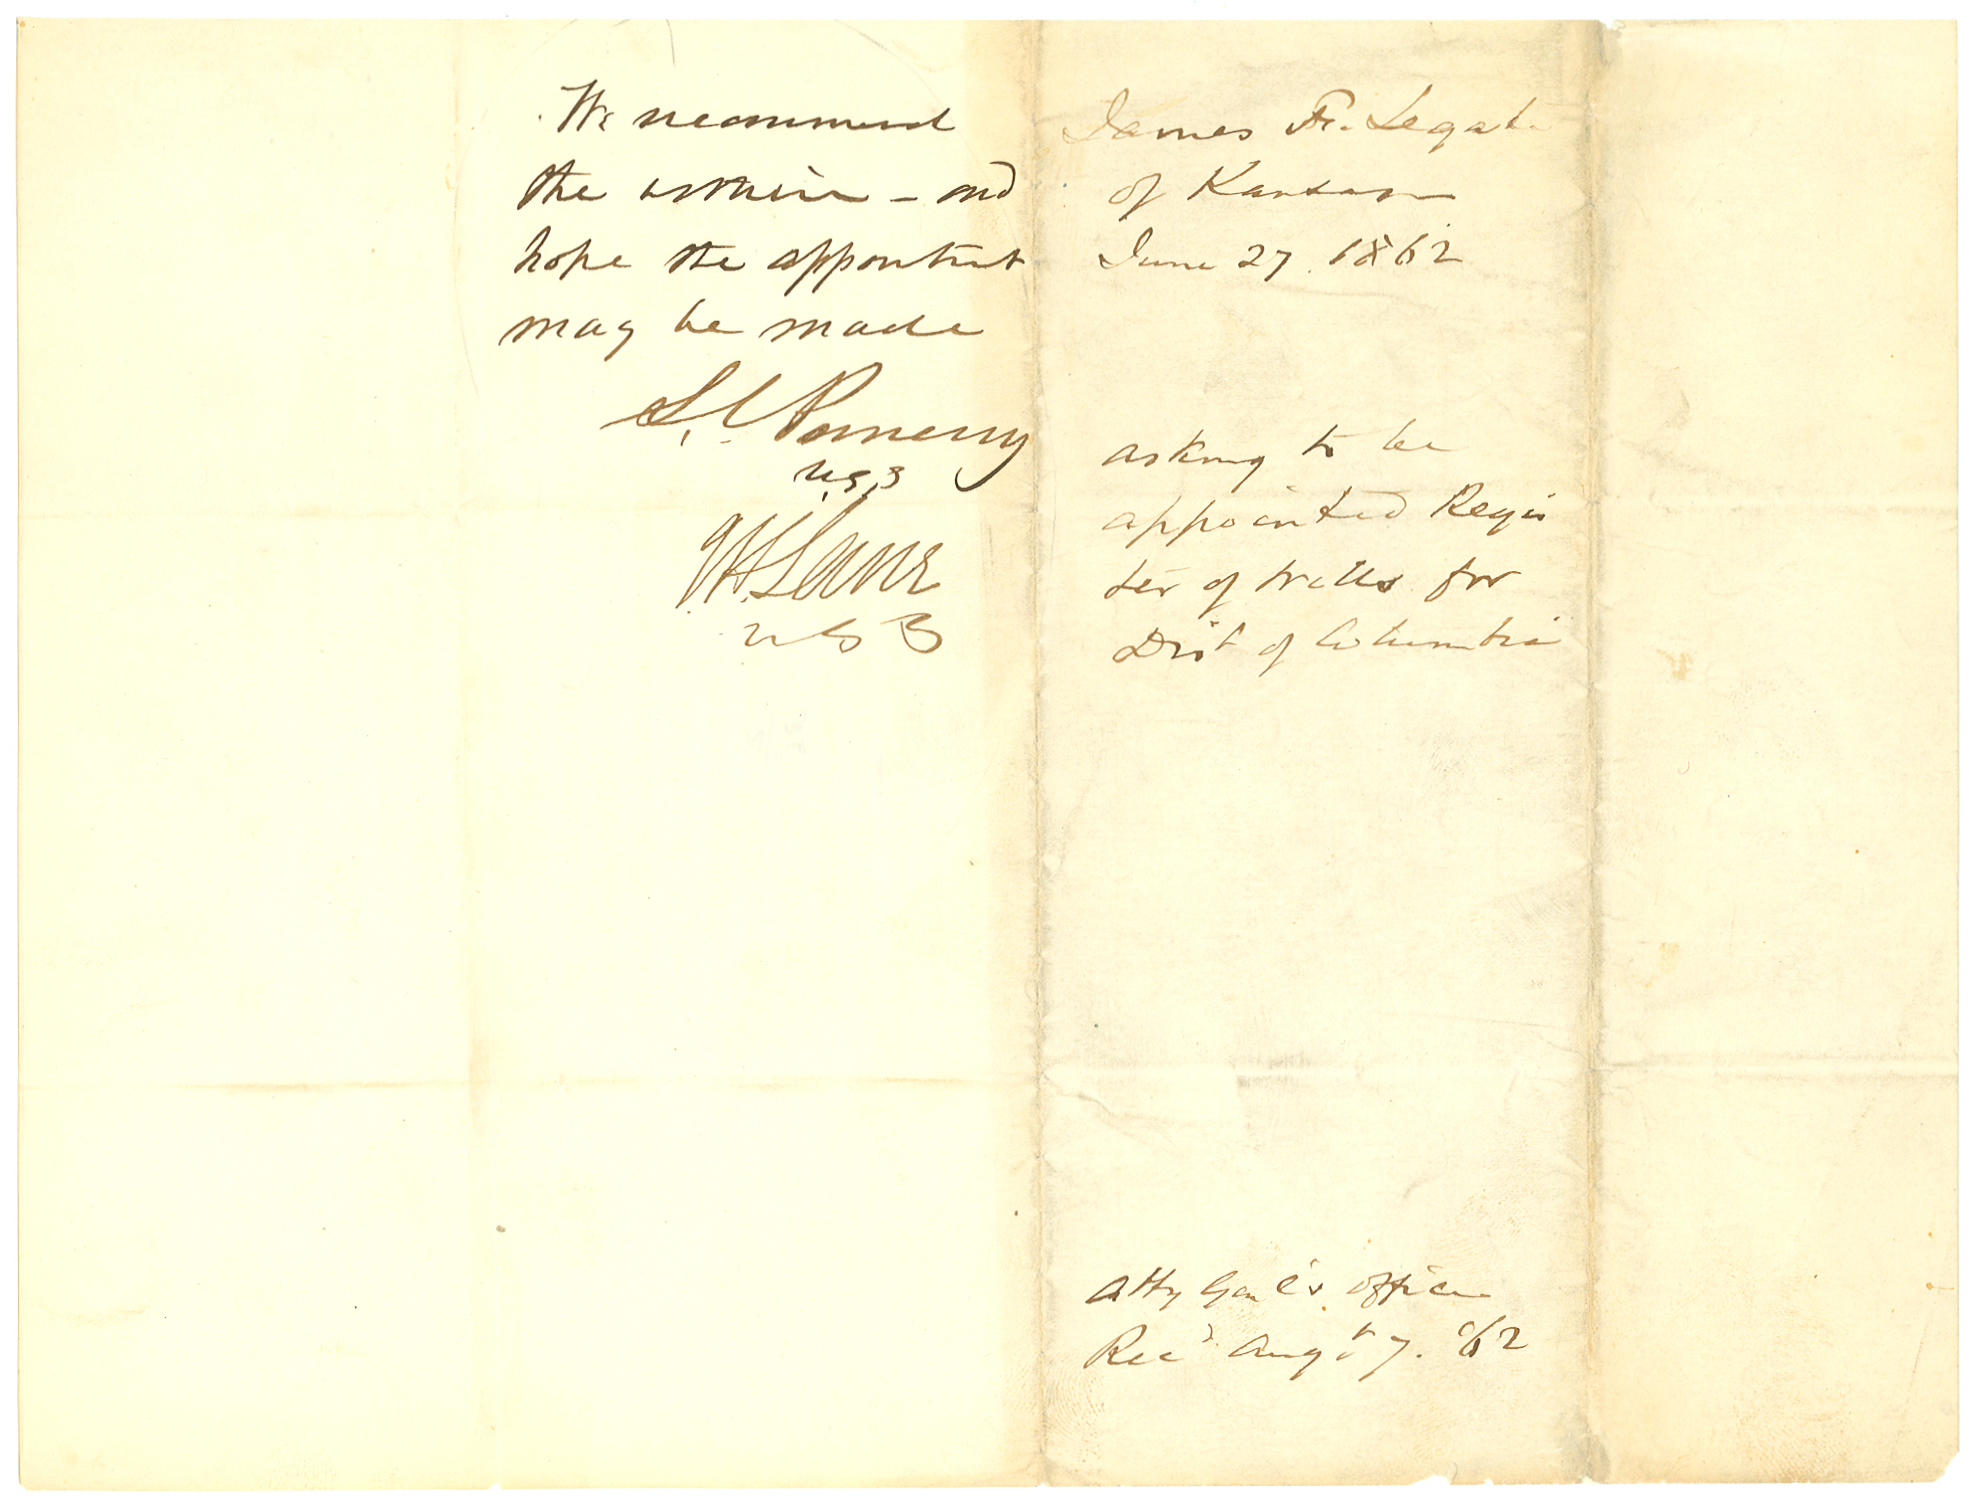 We recommend
the within - and
hope the appointmt
may be made
S. C. Pomeroy
U.S.S
J H Lane
U S S
James F. Legate
of Kansas
June 27. 1862
asking to be
appointed Regis
ter of Wills for
Dist of Columbia
Atty Genl's office
Recd Augt 7. '62